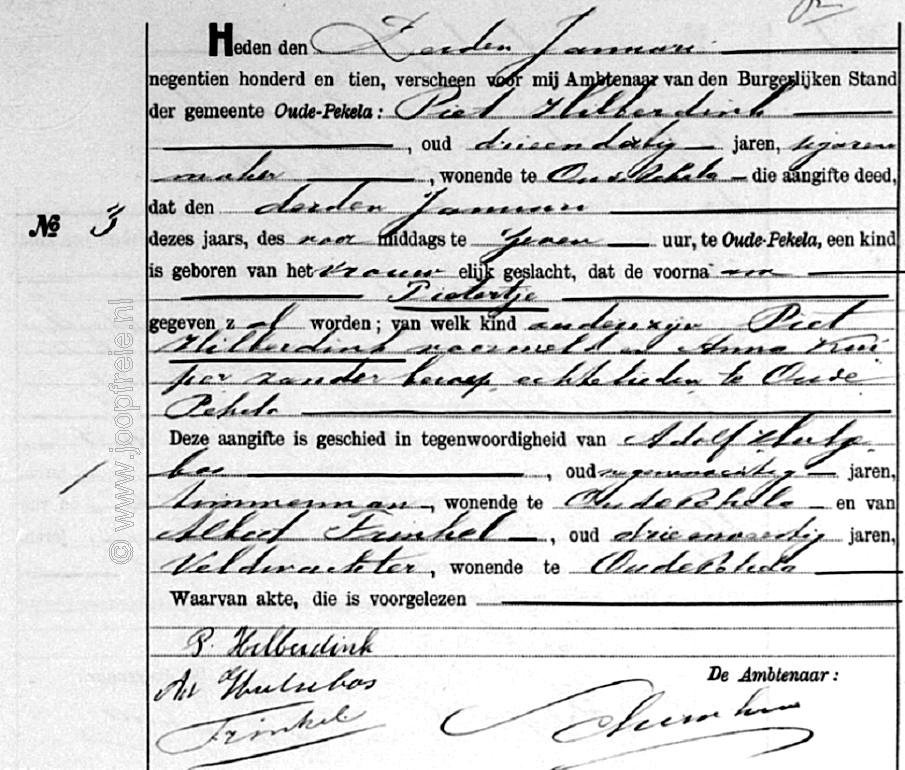 Heden den Derden Januari
negentien honderd en tien, verscheen voor mij Ambtenaar van den Burgerlijken Stand
der gemeente Oude-Pekela: Piet Hilberdink
, oud drieendertig jaren, sigaren
maker , wonende te Oude Pekela die aangifte deed,
No 3 dat den derden Januari
dezes jaars, des voor middags te zeven uur, te Oude-Pekela, een kind
is geboren van het vrouw elijk geslacht, dat de voorna am
Pietertje
gegeven z al worden; van welk kind ouders zijn Piet
Hilberdink voormeld en Anna Kui
per zonder beroep, echtelieden te Oude
Pekela
Deze aangifte is geschied in tegenwoordigheid van Adolf Hulse
bos , oud jaren,
timmerman, wonende te Oude Pekela en van
Albert Frinkel , oud jaren,
Veldwachter, wonende te Oude Pekela
Waarvan akte, die is voorgelezen
P. Hilberdink
De Ambtenaar:
Ad Hulsebos
Frinkel
© www.joopfreie.nl